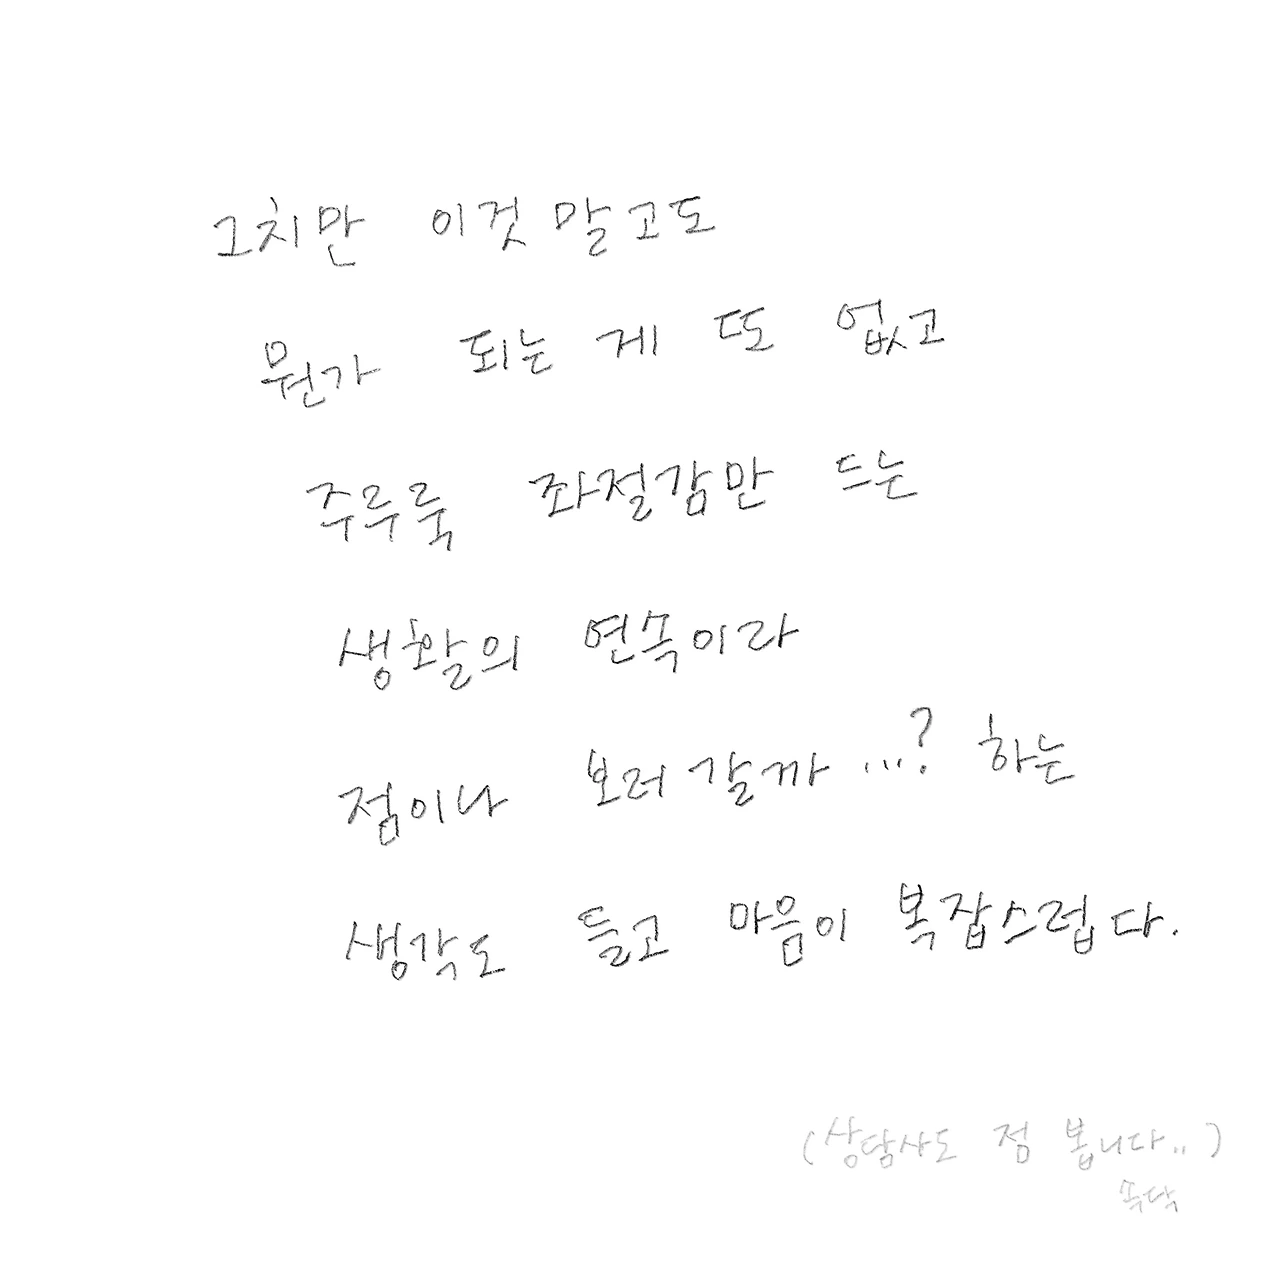 그치만 이것 말고도
뭔가 되는 게 또 없고
주루룩 좌절감만 드는
생활의 연속이라
점이나 보러 갈까...? 하는
생각도 들고 마음이 복잡스럽다.
(상담사도 점 봅니다..)
속닥